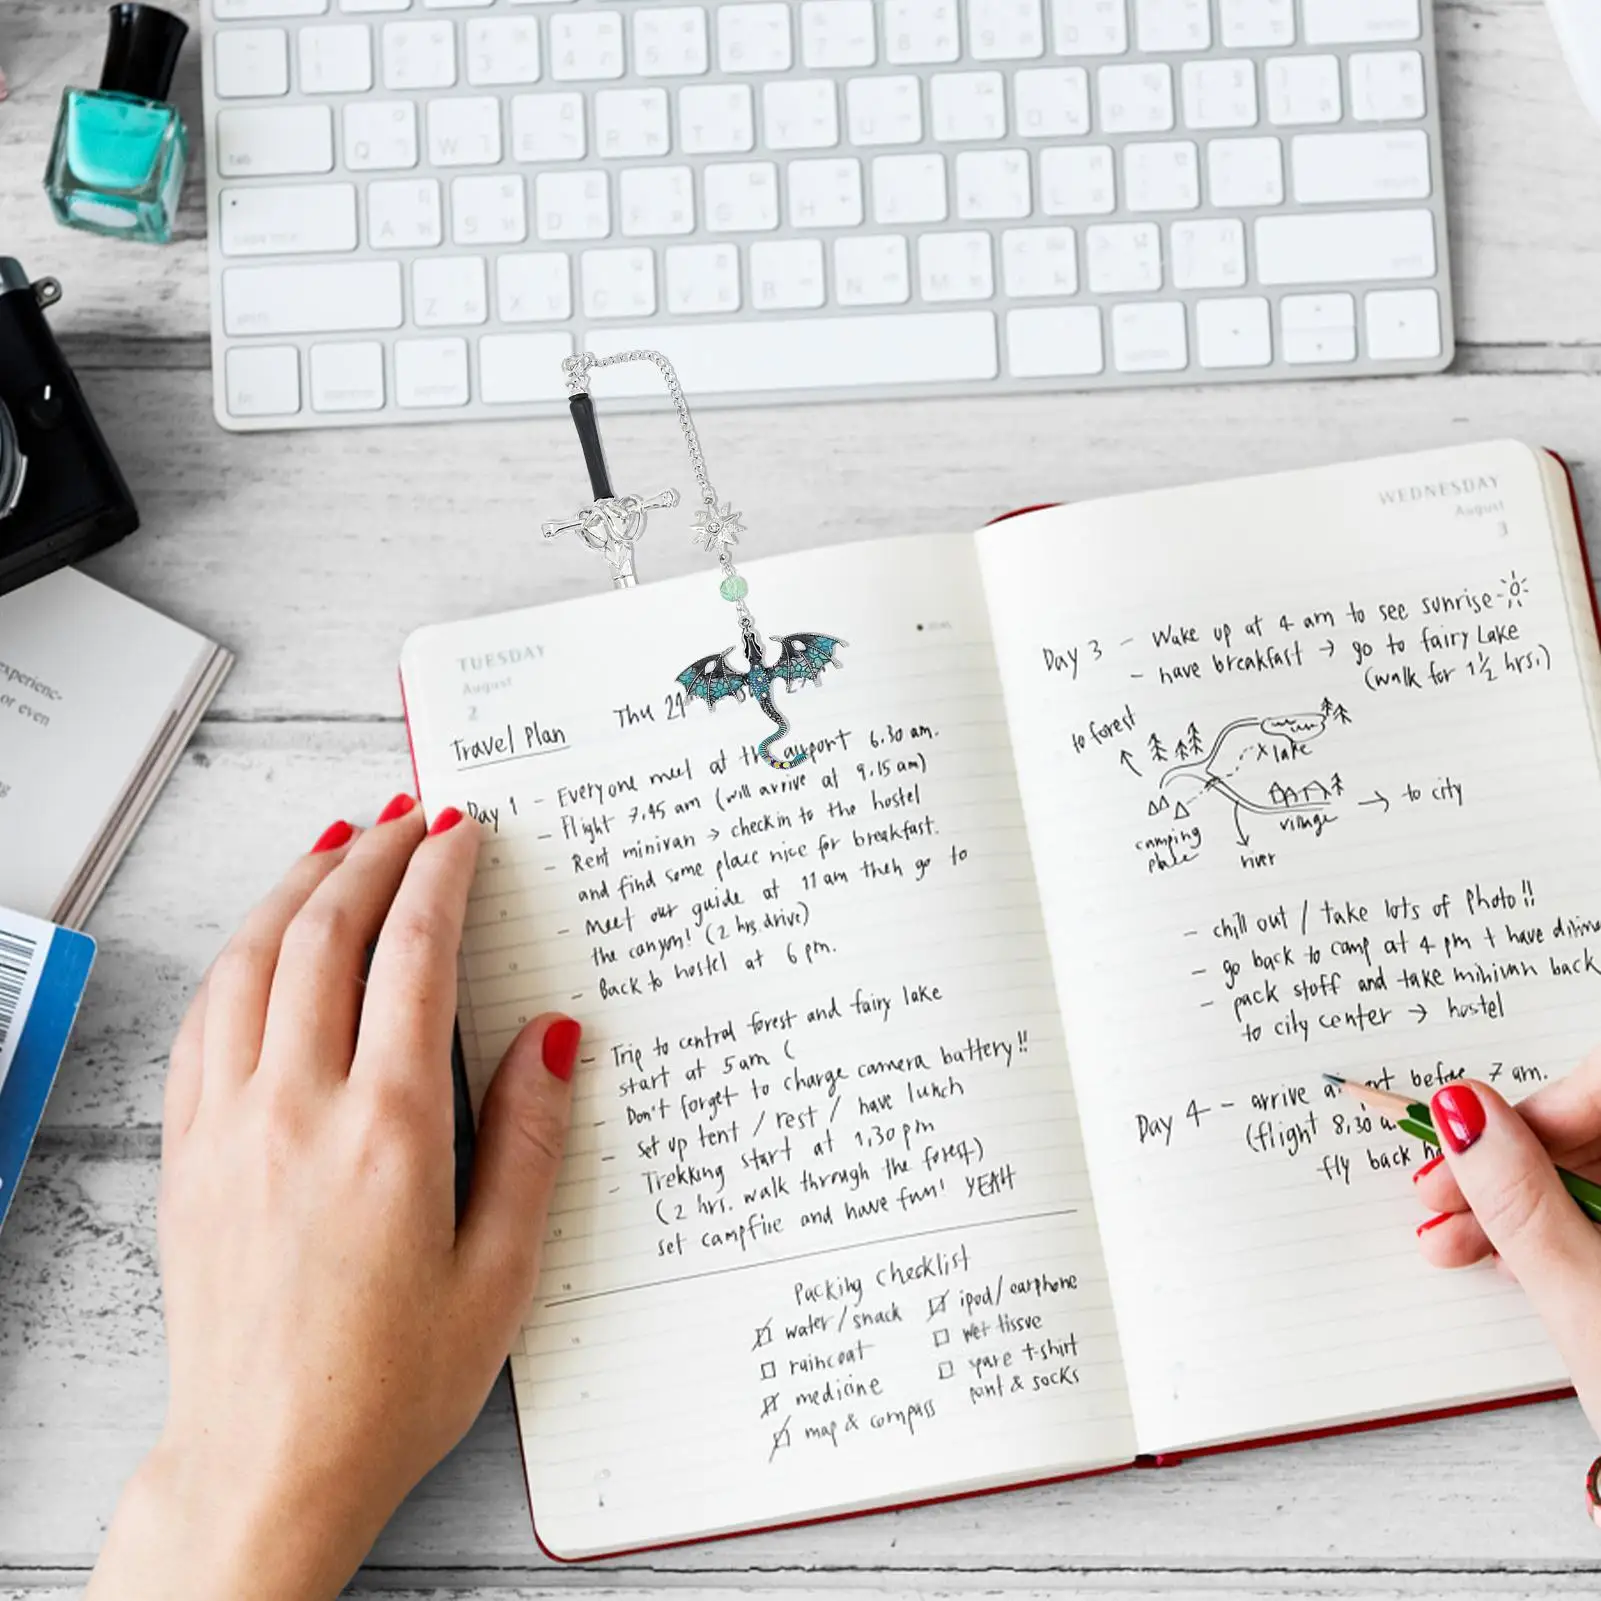 TUESDAY
August
2
Travel Plan
Thu 29
Day 1 - Everyone meet at the airport 6.30 am.
- Flight 7.45 am (will arrive at 9.15 am)
- Rent minivan → check in to the hostel
and find some place nice for breakfast.
- Meet our guide at 11 am then go to
the canyon! (2 hrs drive)
- Back to hostel at 6 pm.
- Trip to central forest and fairy lake
start at 5 am (
- Don't forget to charge camera battery!!
- set up tent / rest / have lunch
- Trekking start at 1.30 pm
(2 hrs. walk through the forest)
set campfire and have fun! YEAH
Packing checklist
water/snack
raincoat
medicine
map & compass
ipod/earphone
wet tissue
spare t-shirt
pant & socks
WEDNESDAY
August
3
Day 3 - Wake up at 4 am to see sunrise
- have breakfast → go to fairy Lake
(walk for 1½ hrs.)
to forest
x lake
→ to city
village
camping
place
river
- chill out / take lots of photo!!
- go back to camp at 4 pm + have
- pack stuff and take minivan back
to city center → hostel
Day 4 - arrive before 7 am.
(flight 8.30
fly back
experienc-
or even
Q W E R T Y U
A S D F G H J K L
Z X C V B N M